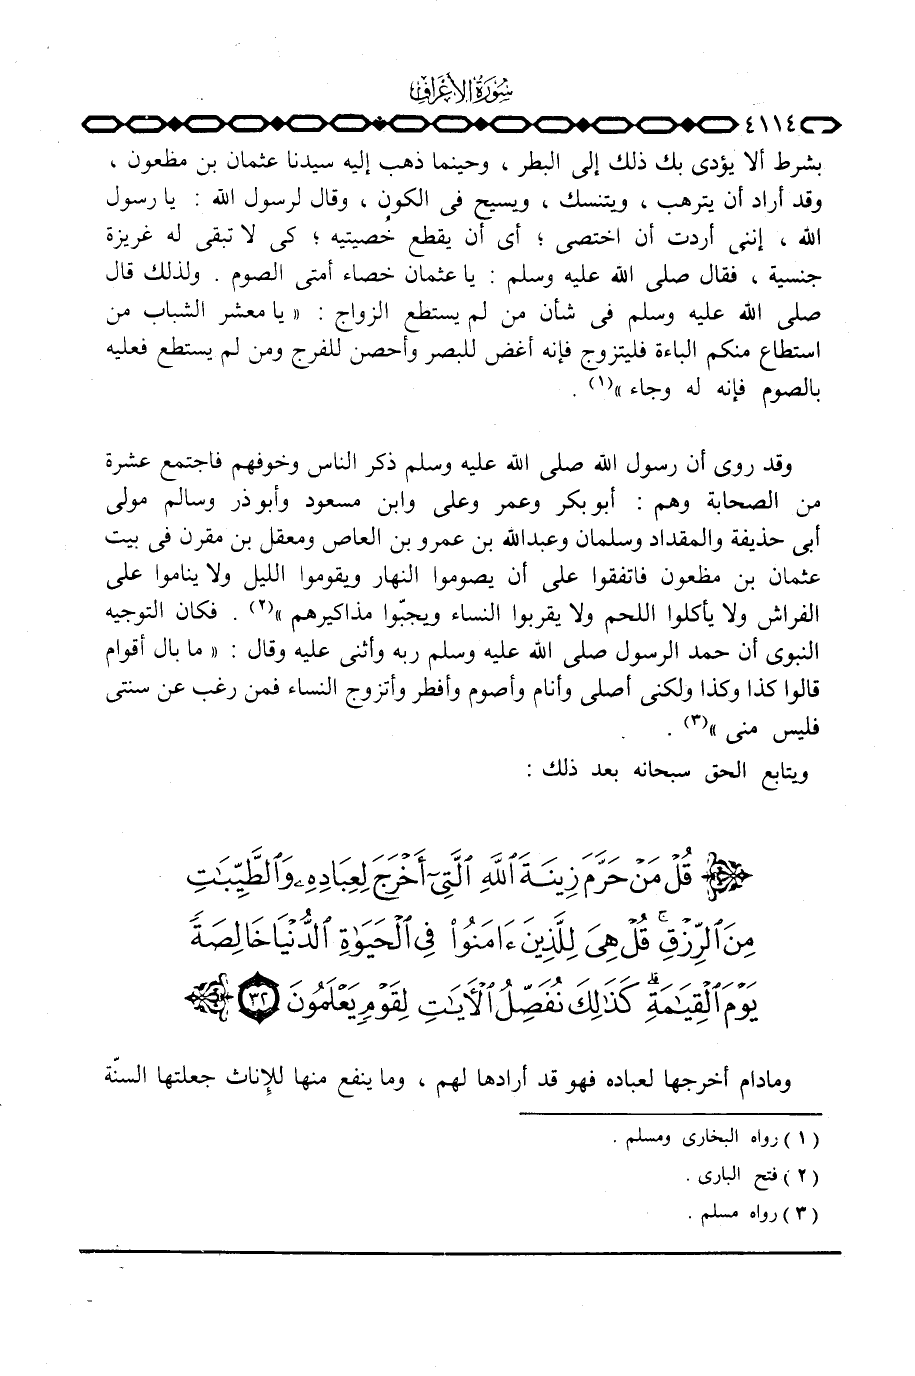 سُورَةُ الأَعْرَافِ
٤١١٤
بشرط ألا يؤدى بك ذلك إلى البطر ، وحينما ذهب إليه سيدنا عثمان بن مظعون ،
وقد أراد أن يترهب ، ويتنسك ، ويسيح فى الكون ، وقال لرسول الله : يا رسول
الله ، إننى أردت أن اختصى ؛ أى أن يقطع خُصيتيه ؛ كى لا تبقى له غريزة
جنسية ، فقال صلى الله عليه وسلم : يا عثمان خصاء أمتى الصوم . ولذلك قال
صلى الله عليه وسلم فى شأن من لم يستطع الزواج : « يا معشر الشباب من
استطاع منكم الباءة فليتزوج فإنه أغض للبصر وأحصن للفرج ومن لم يستطع فعليه
بالصوم فإنه له وجاء »(١) .
وقد روى أن رسول الله صلى الله عليه وسلم ذكر الناس وخوفهم فاجتمع عشرة
من الصحابة وهم : أبو بكر وعمر وعلى وابن مسعود وأبو ذر وسالم مولى
أبى حذيفة والمقداد وسلمان وعبدالله بن عمرو بن العاص ومعقل بن مقرن فى بيت
عثمان بن مظعون فاتفقوا على أن يصوموا النهار ويقوموا الليل ولا يناموا على
الفراش ولا يأكلوا اللحم ولا يقربوا النساء ويجبّوا مذاكيرهم »(٢) . فكان التوجيه
النبوى أن حمد الرسول صلى الله عليه وسلم ربه وأثنى عليه وقال : « ما بال أقوام
قالوا كذا وكذا ولكنى أصلى وأنام وأصوم وأفطر وأتزوج النساء فمن رغب عن سنتى
فليس منى »(٣) .
ويتابع الحق سبحانه بعد ذلك :
قُلْ مَنْ حَرَّمَ زِينَةَ ٱللَّهِ ٱلَّتِىٓ أَخْرَجَ لِعِبَادِهِۦ وَٱلطَّيِّبَٰتِ
مِنَ ٱلرِّزْقِ ۚ قُلْ هِىَ لِلَّذِينَ ءَامَنُوا۟ فِى ٱلْحَيَوٰةِ ٱلدُّنْيَا خَالِصَةً
يَوْمَ ٱلْقِيَٰمَةِ ۗ كَذَٰلِكَ نُفَصِّلُ ٱلْءَايَٰتِ لِقَوْمٍ يَعْلَمُونَ ٣٢
ومادام أخرجها لعباده فهو قد أرادها لهم ، وما ينفع منها للإناث جعلتها السنّة
( ١ ) رواه البخارى ومسلم .
( ٢ ) فتح البارى .
( ٣ ) رواه مسلم .